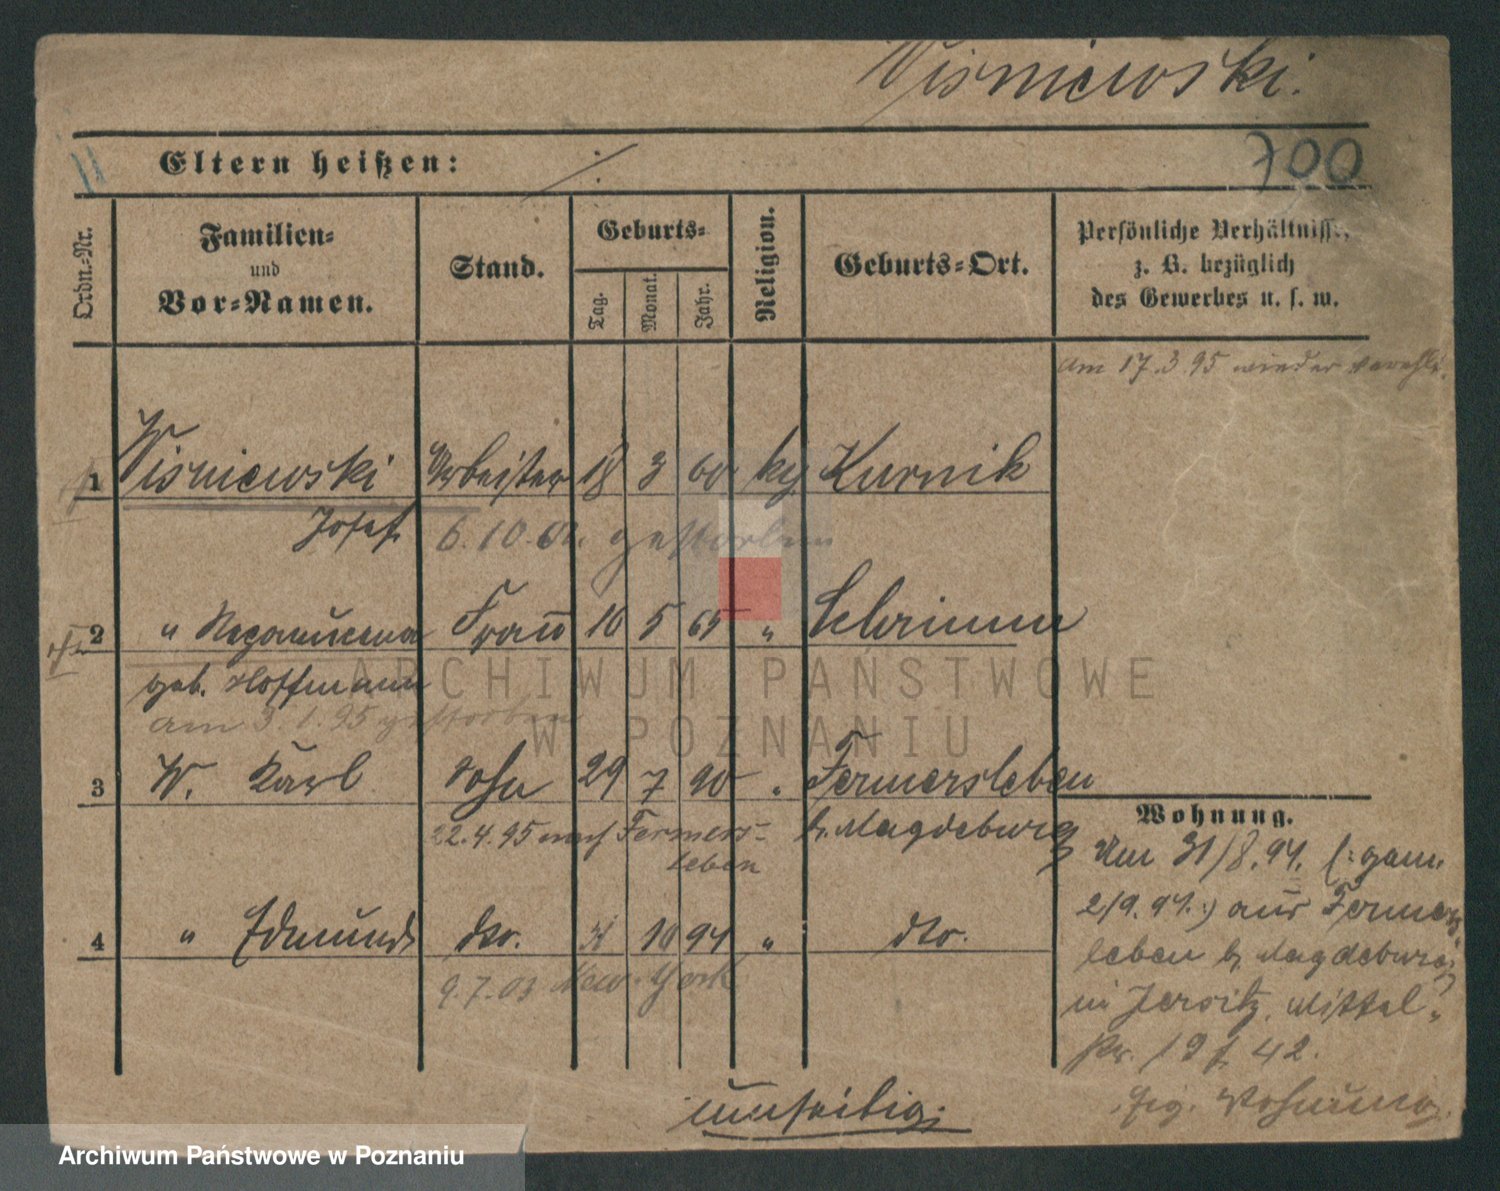 Wiśniewski.
700
Eltern heißen: ./.
Ordn.-Nr.
Familien-
und
Vor-Namen.
Stand.
Geburts-
Tag.
Monat.
Jahr.
Religion.
Geburts-Ort.
Persönliche Verhältnisse,
z. B. bezüglich
des Gewerbes u. s. w.
Am 17.3.95 wieder verehl.
1 Wiśniewski Arbeiter 18 3 60 kg Kurnik
Josef 6.10.02. gestorben
2 " Frau 10 5 65 " Schrimm
geb. Hoffmann
am 3.1.95 gestorben
3 W. Karl Sohn 29 7 90 " Fermersleben
22.4.95 nach Fermers-
leben
b. Magdeburg
4 " Edmund dto. 94 " dto.
9.7.03 New-York
Wohnung.
Am 31/8.94. (: gem.
2/9.94.:) aus Fermers-
leben b. Magdeburg
in Jersitz, Mittel-
str. 19 b. 42.
eig. Wohnung.
umseitig.
ARCHIWUM PAŃSTWOWE
W POZNANIU
Archiwum Państwowe w Poznaniu